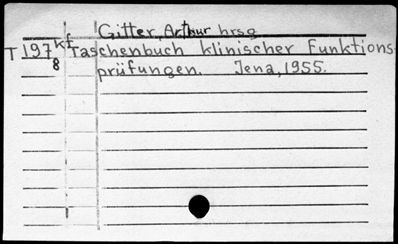 Gitter, Arthur hrsg
T197kf Taschenbuch klinischer Funktions-
8 prüfungen. Jena, 1955.